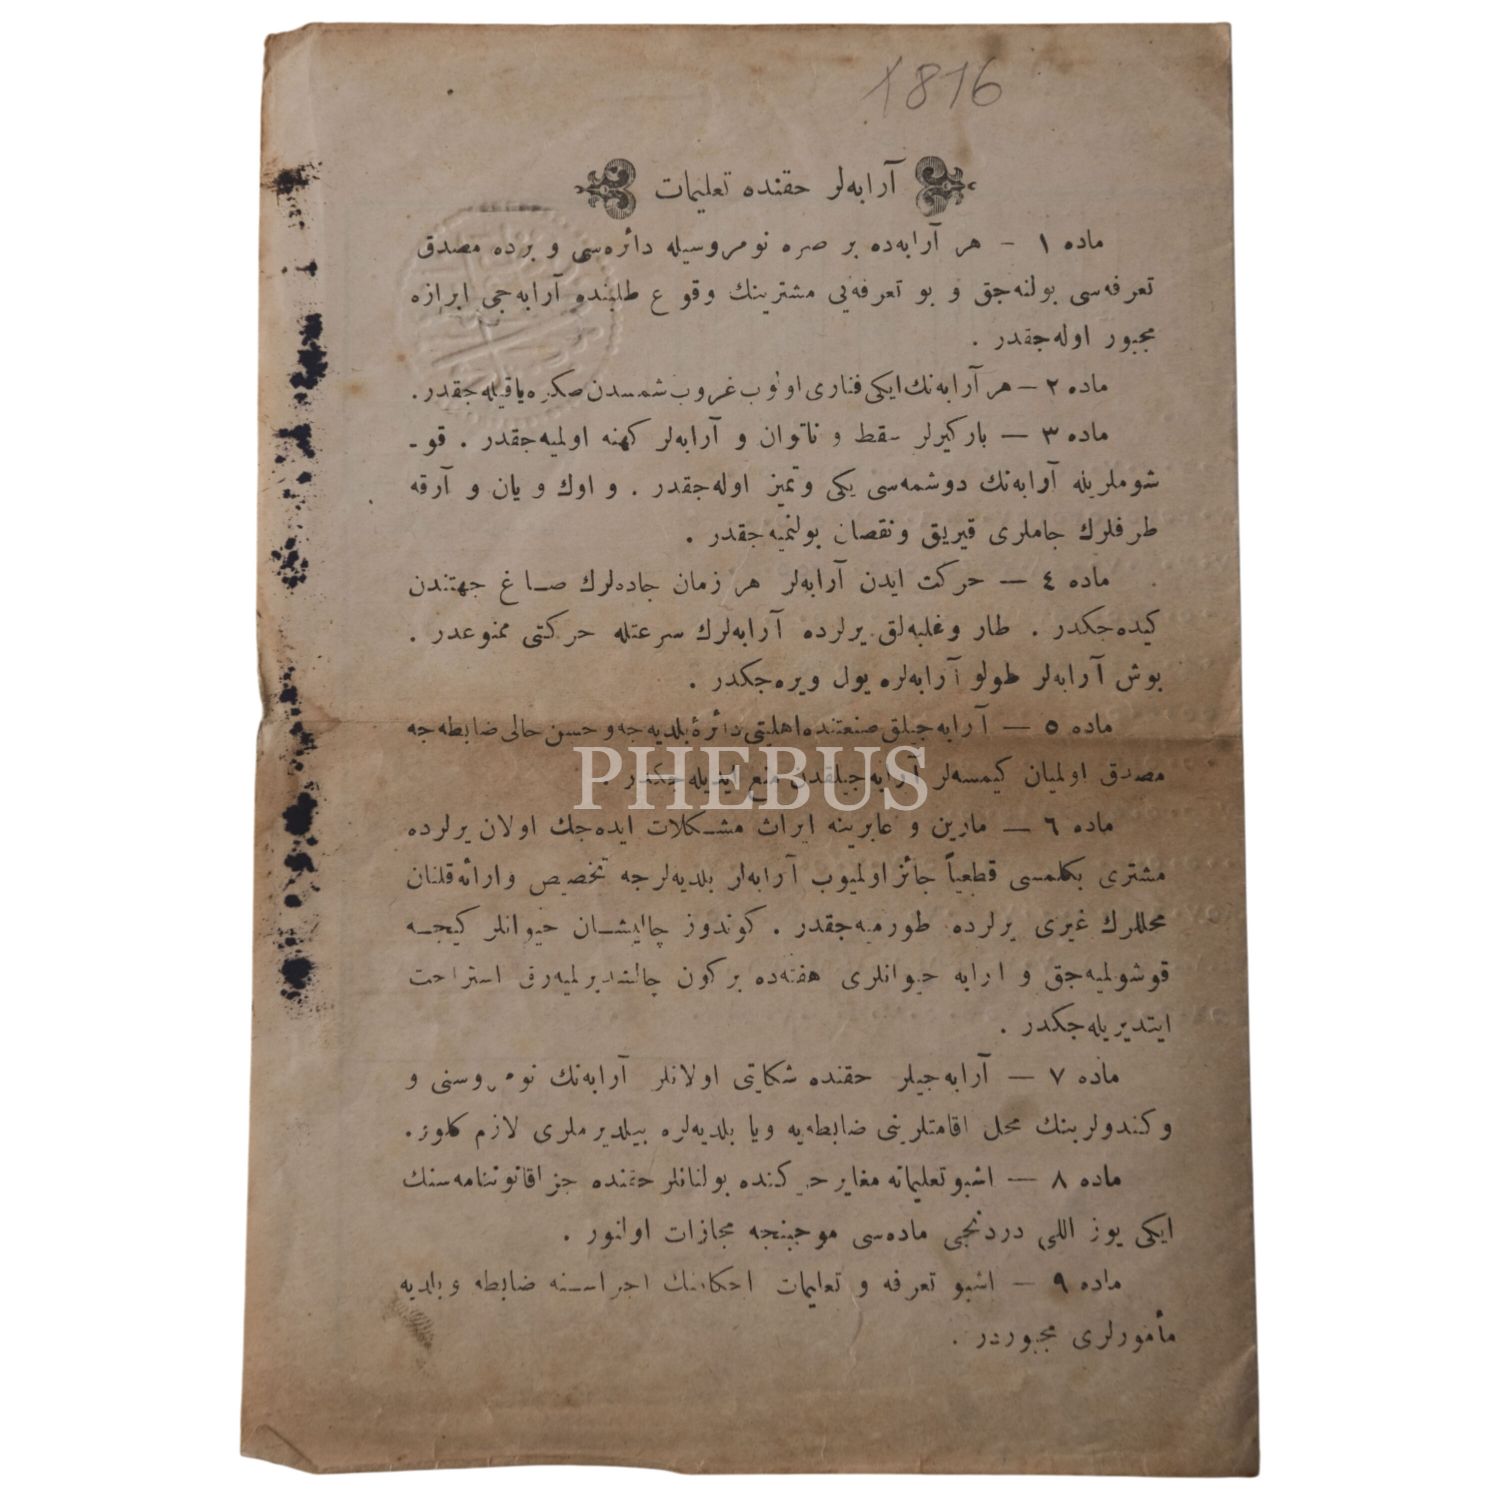 1816
آرابه‌لر حقنده تعلیمات
ماده ١ - هر آرابه‌ده بر صره نومروسیله دائره‌سی و برده مصدق
تعرفه‌سی بولنه‌جق و بو تعرفه‌یی مشترینك وقوع طلبنده آرابه‌جی ابرازه
مجبور اوله‌جقدر .
ماده ٢ — هر آرابه‌نك ایکی فناری اولوب غروب شمسدن صکره یاقیله‌جقدر .
ماده ٣ — بارکیرلر سقط و ناتوان و آرابه‌لر کهنه اولمیه‌جقدر . قو-
شوملریله آرابه‌نك دوشمه‌سی یکی و تمیز اوله‌جقدر . و اوك و یان و آرقه
طرفلرك جاملری قیریق و نقصان بولنمیه‌جقدر .
ماده ٤ — حرکت ایدن آرابه‌لر هر زمان جاده‌لرك صـاغ جهتندن
کیده‌جکدر . طار و غلبه‌لق یرلرده آرابه‌لرك سرعتله حرکتی ممنوعدر .
بوش آرابه‌لر طولو آرابه‌لره یول ویره‌جکدر .
ماده ٥ — آرابه‌جیلق صنعتنده اهلیتی دائرۀ بلدیه‌جه و حسن حالی ضابطه‌جه
مصدق اولمیان کیمسه‌لر آرابه‌جیلقدن منع ایدیله‌جکدر .
PHEBUS
ماده ٦ — مارین و عابرینه ایراث مشـکلات ایده‌جك اولان یرلرده
مشتری بکلمسی قطعیاً جائز اولمیوب آرابه‌لر بلدیه‌لرجه تخصیص و ارائه قلنان
محللرك غیری یرلرده طورمیه‌جقدر . کوندوز چالیشـان حیوانلر کیجـه
قوشولمیه‌جق و ارابه حیوانلری هفته‌ده برکون چالشدیرلمیه‌رق استراحت
ایتدیریله‌جکدر .
ماده ٧ — آرابه‌جیلر حقنده شکایتی اولانلر آرابه‌نك نومروسنی و
وکندولرینك محل اقامتلرینی ضابطه‌یه ویا بلدیه‌لره بیلدیرملری لازم کلور .
ماده ٨ — اشبو تعلیماته مغایر حرکتده بولنانلر حقنده جزا قانوننامه‌سنك
ایکی یوز اللی دردنجی ماده‌سی موجبنجه مجازات اولنور .
ماده ٩ — اشبو تعرفه و تعلیمات احکامنك اجراسـنه ضابطه و بلدیه
مأمورلری مجبوردر .